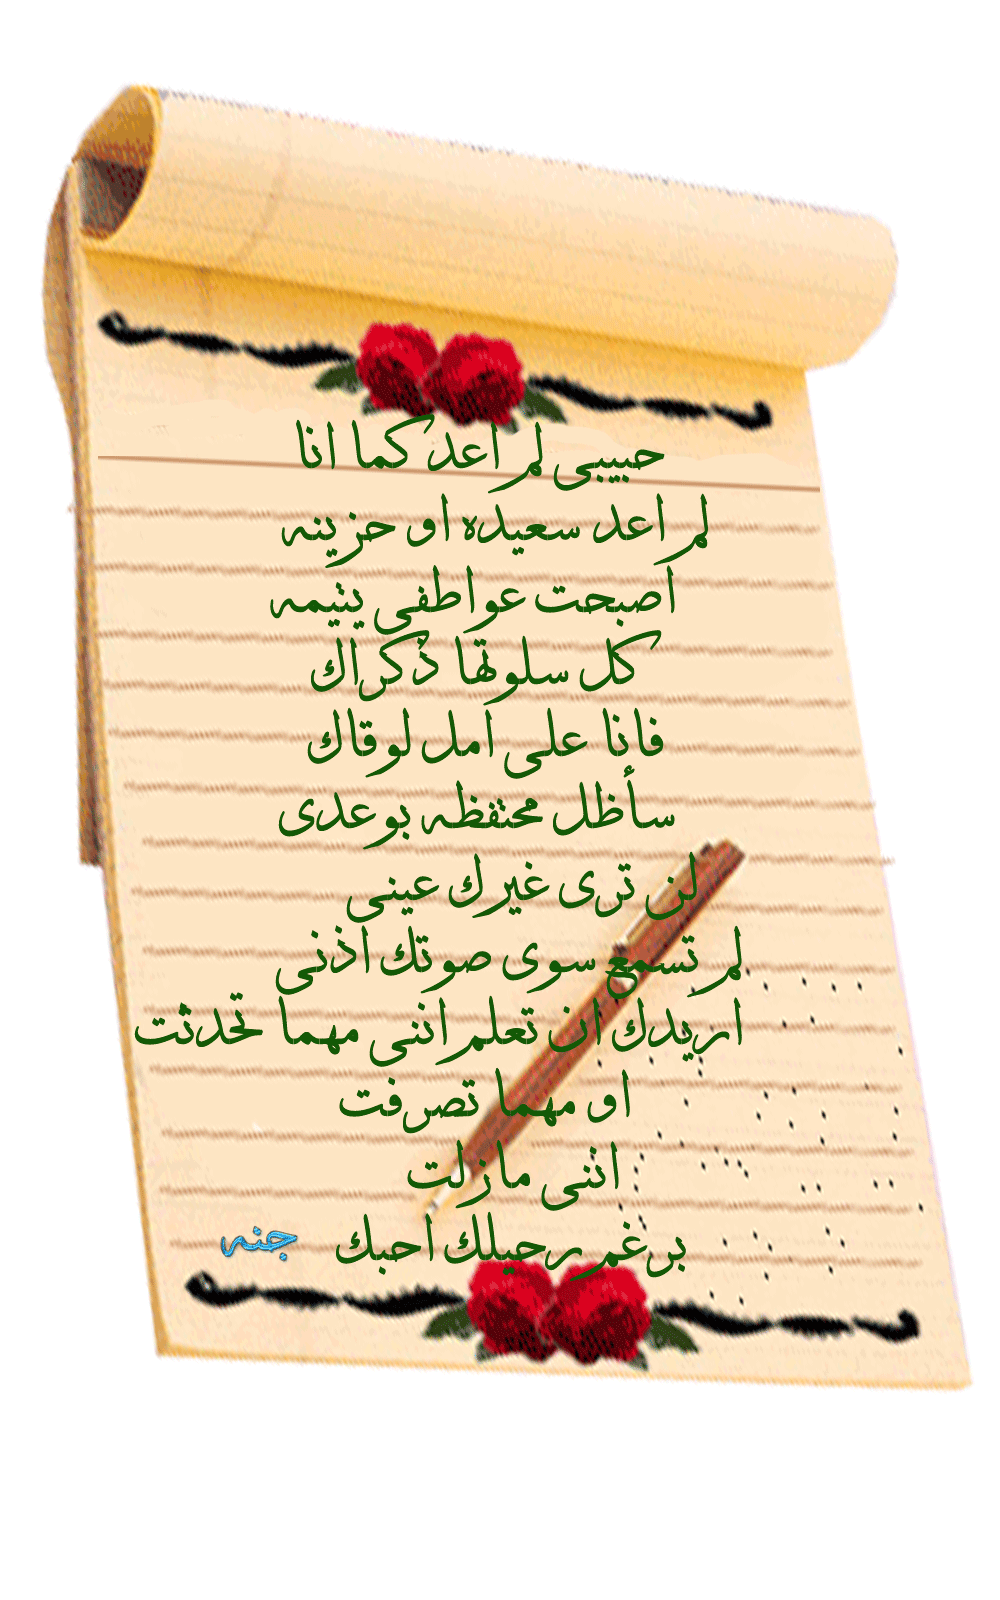 حبيبى لم اعد كما انا
لم اعد سعيده او حزينه
اصبحت عواطفى يتيمه
كل سلوتها ذكراك
فانا على امل لوقاك
سأظل محتفظه بوعدى
لن ترى غيرك عينى
لم تسمع سوى صوتك اذنى
اريدك ان تعلم اننى مهما تحدثت
او مهما تصرفت
اننى مازلت
برغم رحيلك احبك
جنه